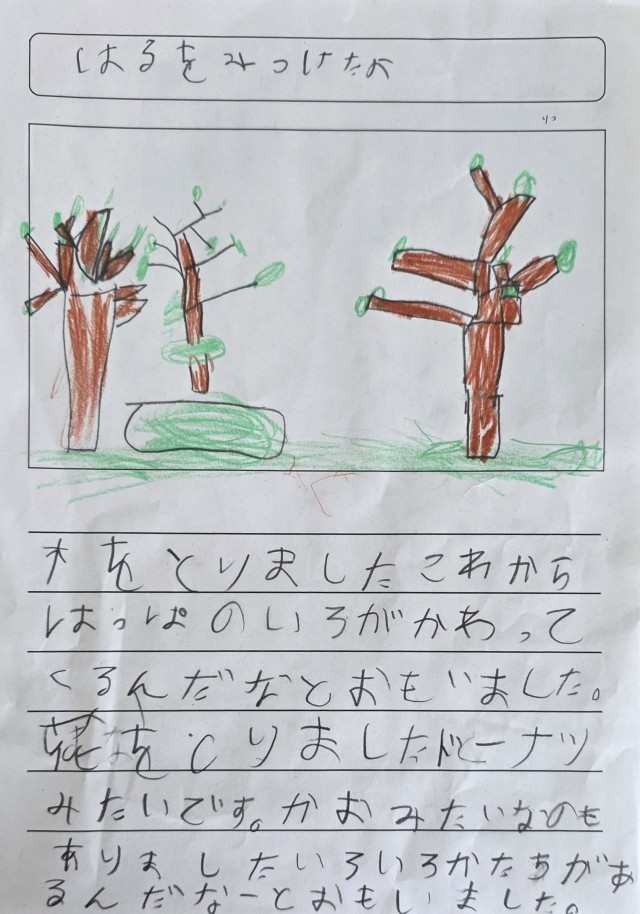 はるをみつけたよ
木をとりましたこれから
はっぱのいろがかわって
くるんだなとおもいました。
花をとりましたドーナツ
みたいです。かおみたいなのも
ありましたいろいろかたちがあ
るんだなーとおもいました。